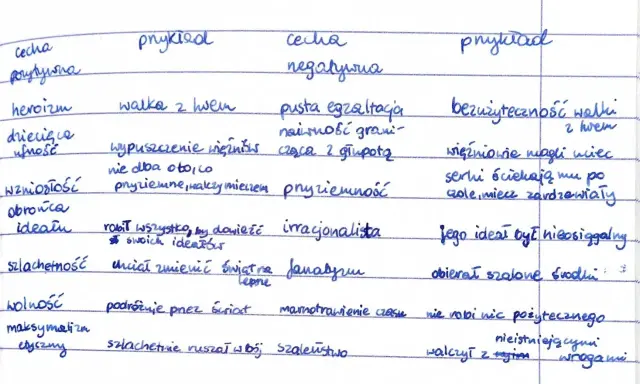 cecha pozytywna przykład cecha negatywna przykład
heroizm walka z lwem pusta egzaltacja bezużyteczność walki z lwem
dziecięca ufność wypuszczenie więźniów naiwność granicząca z głupotą więźniowie mogli uciec
wzniosłość nie dba o to, co przyziemne, walczy mieczem przyziemność serki ściekają mu po czole, miecz zardzewiały
obrońca ideału robił wszystko, by dowieść swoich ideałów irracjonalista jego ideał był nieosiągalny
szlachetność chciał zmienić świat na lepne fanatyzm obierał szalone środki
wolność podróżuje przez świat marnotrawienie czasu nie robi nic pożytecznego
maksymalizm etyczny szlachetnie ruszał w bój szaleństwo walczył z nieistniejącymi wrogami